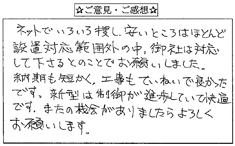 ☆ご意見・ご感想☆
ネットでいろいろ捜し、安いところはほとんど
設置対応範囲外の中、御社は対応
して下さるとのことでお願いしました。
納期も短かく、工事もていねいで良かった
です。新型は制御が進歩していて快適
です。またの機会がありましたらよろしく
お願いします。